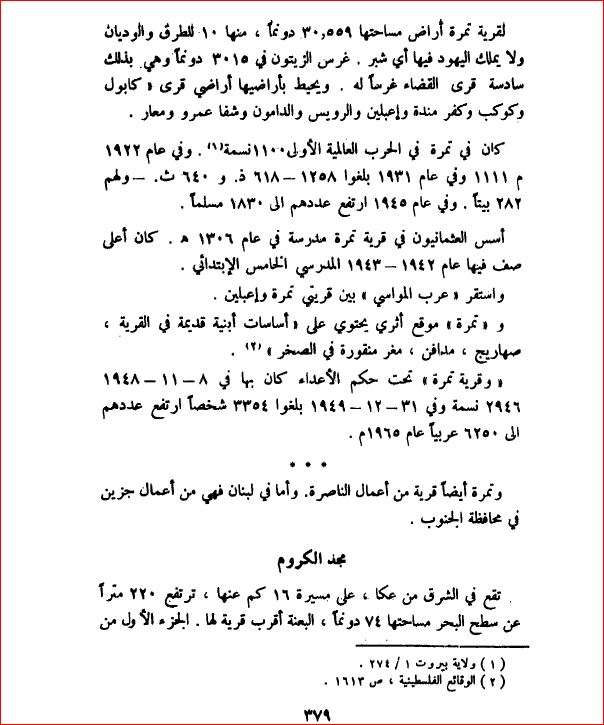 لقرية تمرة أراض مساحتها ٣٠,٥٥٩ دونماً ، منها ١٠ للطرق والوديان
ولا يملك اليهود فيها أي شبر . غرس الزيتون في ٣٠١٥ دونماً وهي بذلك
سادسة قرى القضاء غرساً له . ويحيط بأراضيها أراضي قرى « كابول
وكوكب وكفر مندة وإعبلين والرويس والدامون وشفا عمرو ومعار .
كان في تمرة في الحرب العالمية الأولى ١١٠٠ نسمة(١) . وفي عام ١٩٢٢
م ١١١١ وفي عام ١٩٣١ بلغوا ١٢٥٨ – ٦١٨ ذ. و ٦٤٠ ث. – ولهم
٢٨٢ بيتاً . وفي عام ١٩٤٥ ارتفع عددهم الى ١٨٣٠ مسلماً .
أسس العثمانيون في قرية تمرة مدرسة في عام ١٣٠٦ ه . كان أعلى
صف فيها عام ١٩٤٢ – ١٩٤٣ المدرسي الخامس الإبتدائي .
واستقر « عرب المواسي » بين قريتي تمرة وإعبلين .
و « تمرة » موقع أثري يحتوي على « أساسات أبنية قديمة في القرية ،
صهاريج ، مدافن ، مغر منقورة في الصخر » (٢) .
« وقرية تمرة » تحت حكم الأعداء كان بها في ٨ – ١١ – ١٩٤٨
٢٩٤٦ نسمة وفي ٣١ – ١٢ – ١٩٤٩ بلغوا ٣٣٥٤ شخصاً ارتفع عددهم
الى ٦٢٥٠ عربياً عام ١٩٦٥م .
* * *
وتمرة أيضاً قرية من أعمال الناصرة. وأما في لبنان فهي من أعمال جزين
في محافظة الجنوب .
مجد الكروم
تقع في الشرق من عكا ، على مسيرة ١٦ كم عنها ، ترتفع ٢٢٠ متراً
عن سطح البحر مساحتها ٧٤ دونماً ، البعنة أقرب قرية لها . الجزء الأول من
( ١ ) ولاية بيروت ١ / ٢٧٤ .
( ٢ ) الوقائع الفلسطينية ، ص ١٦١٣ .
٣٧٩